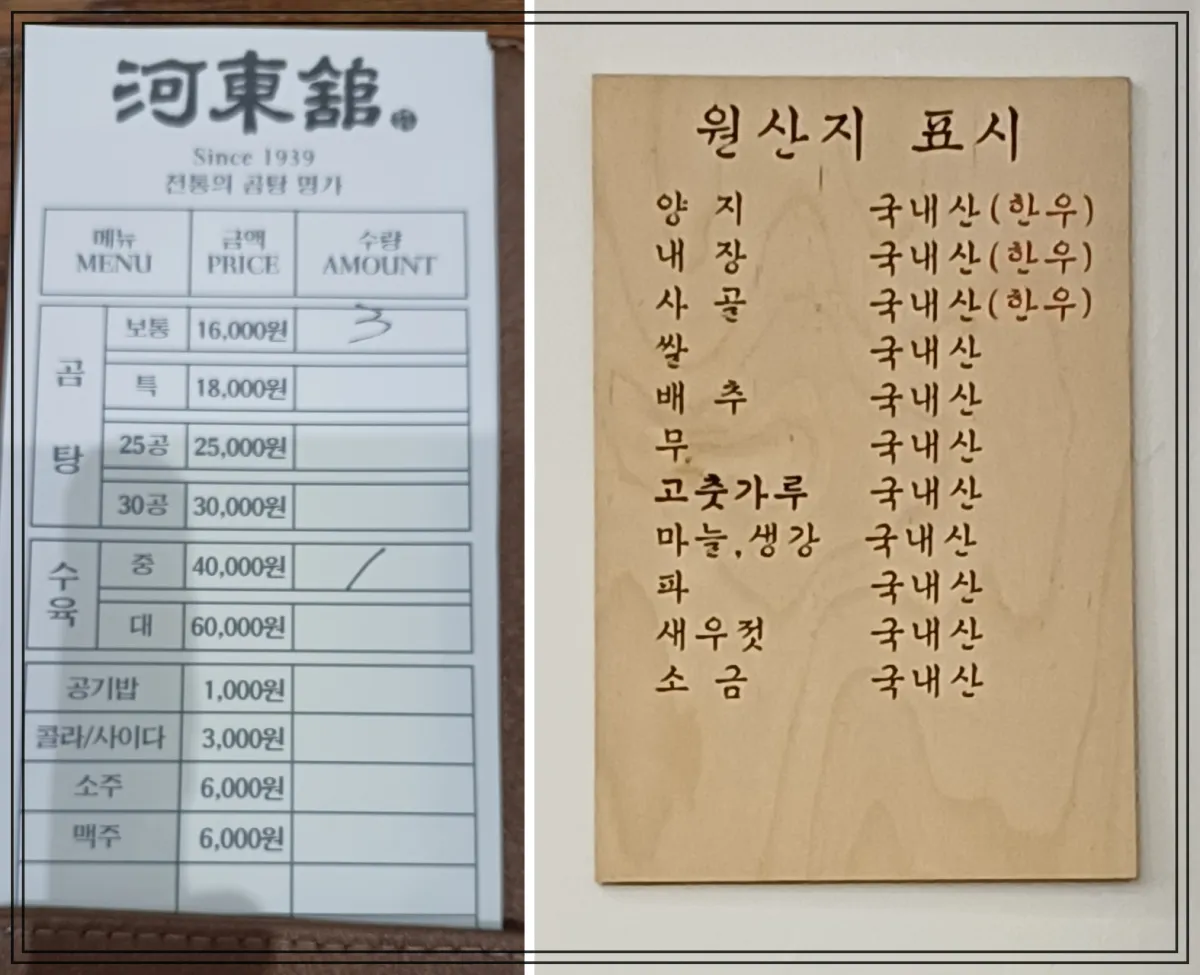 河東館
Since 1939
전통의 곰탕 명가
메뉴 금액 수량
MENU PRICE AMOUNT
곰탕
보통 16,000원 3
특 18,000원
25공 25,000원
30공 30,000원
수육
중 40,000원 /
대 60,000원
공기밥 1,000원
콜라/사이다 3,000원
소주 6,000원
맥주 6,000원
원산지 표시
양지 국내산(한우)
내장 국내산(한우)
사골 국내산(한우)
쌀 국내산
배추 국내산
무 국내산
고춧가루 국내산
마늘,생강 국내산
파 국내산
새우젓 국내산
소금 국내산